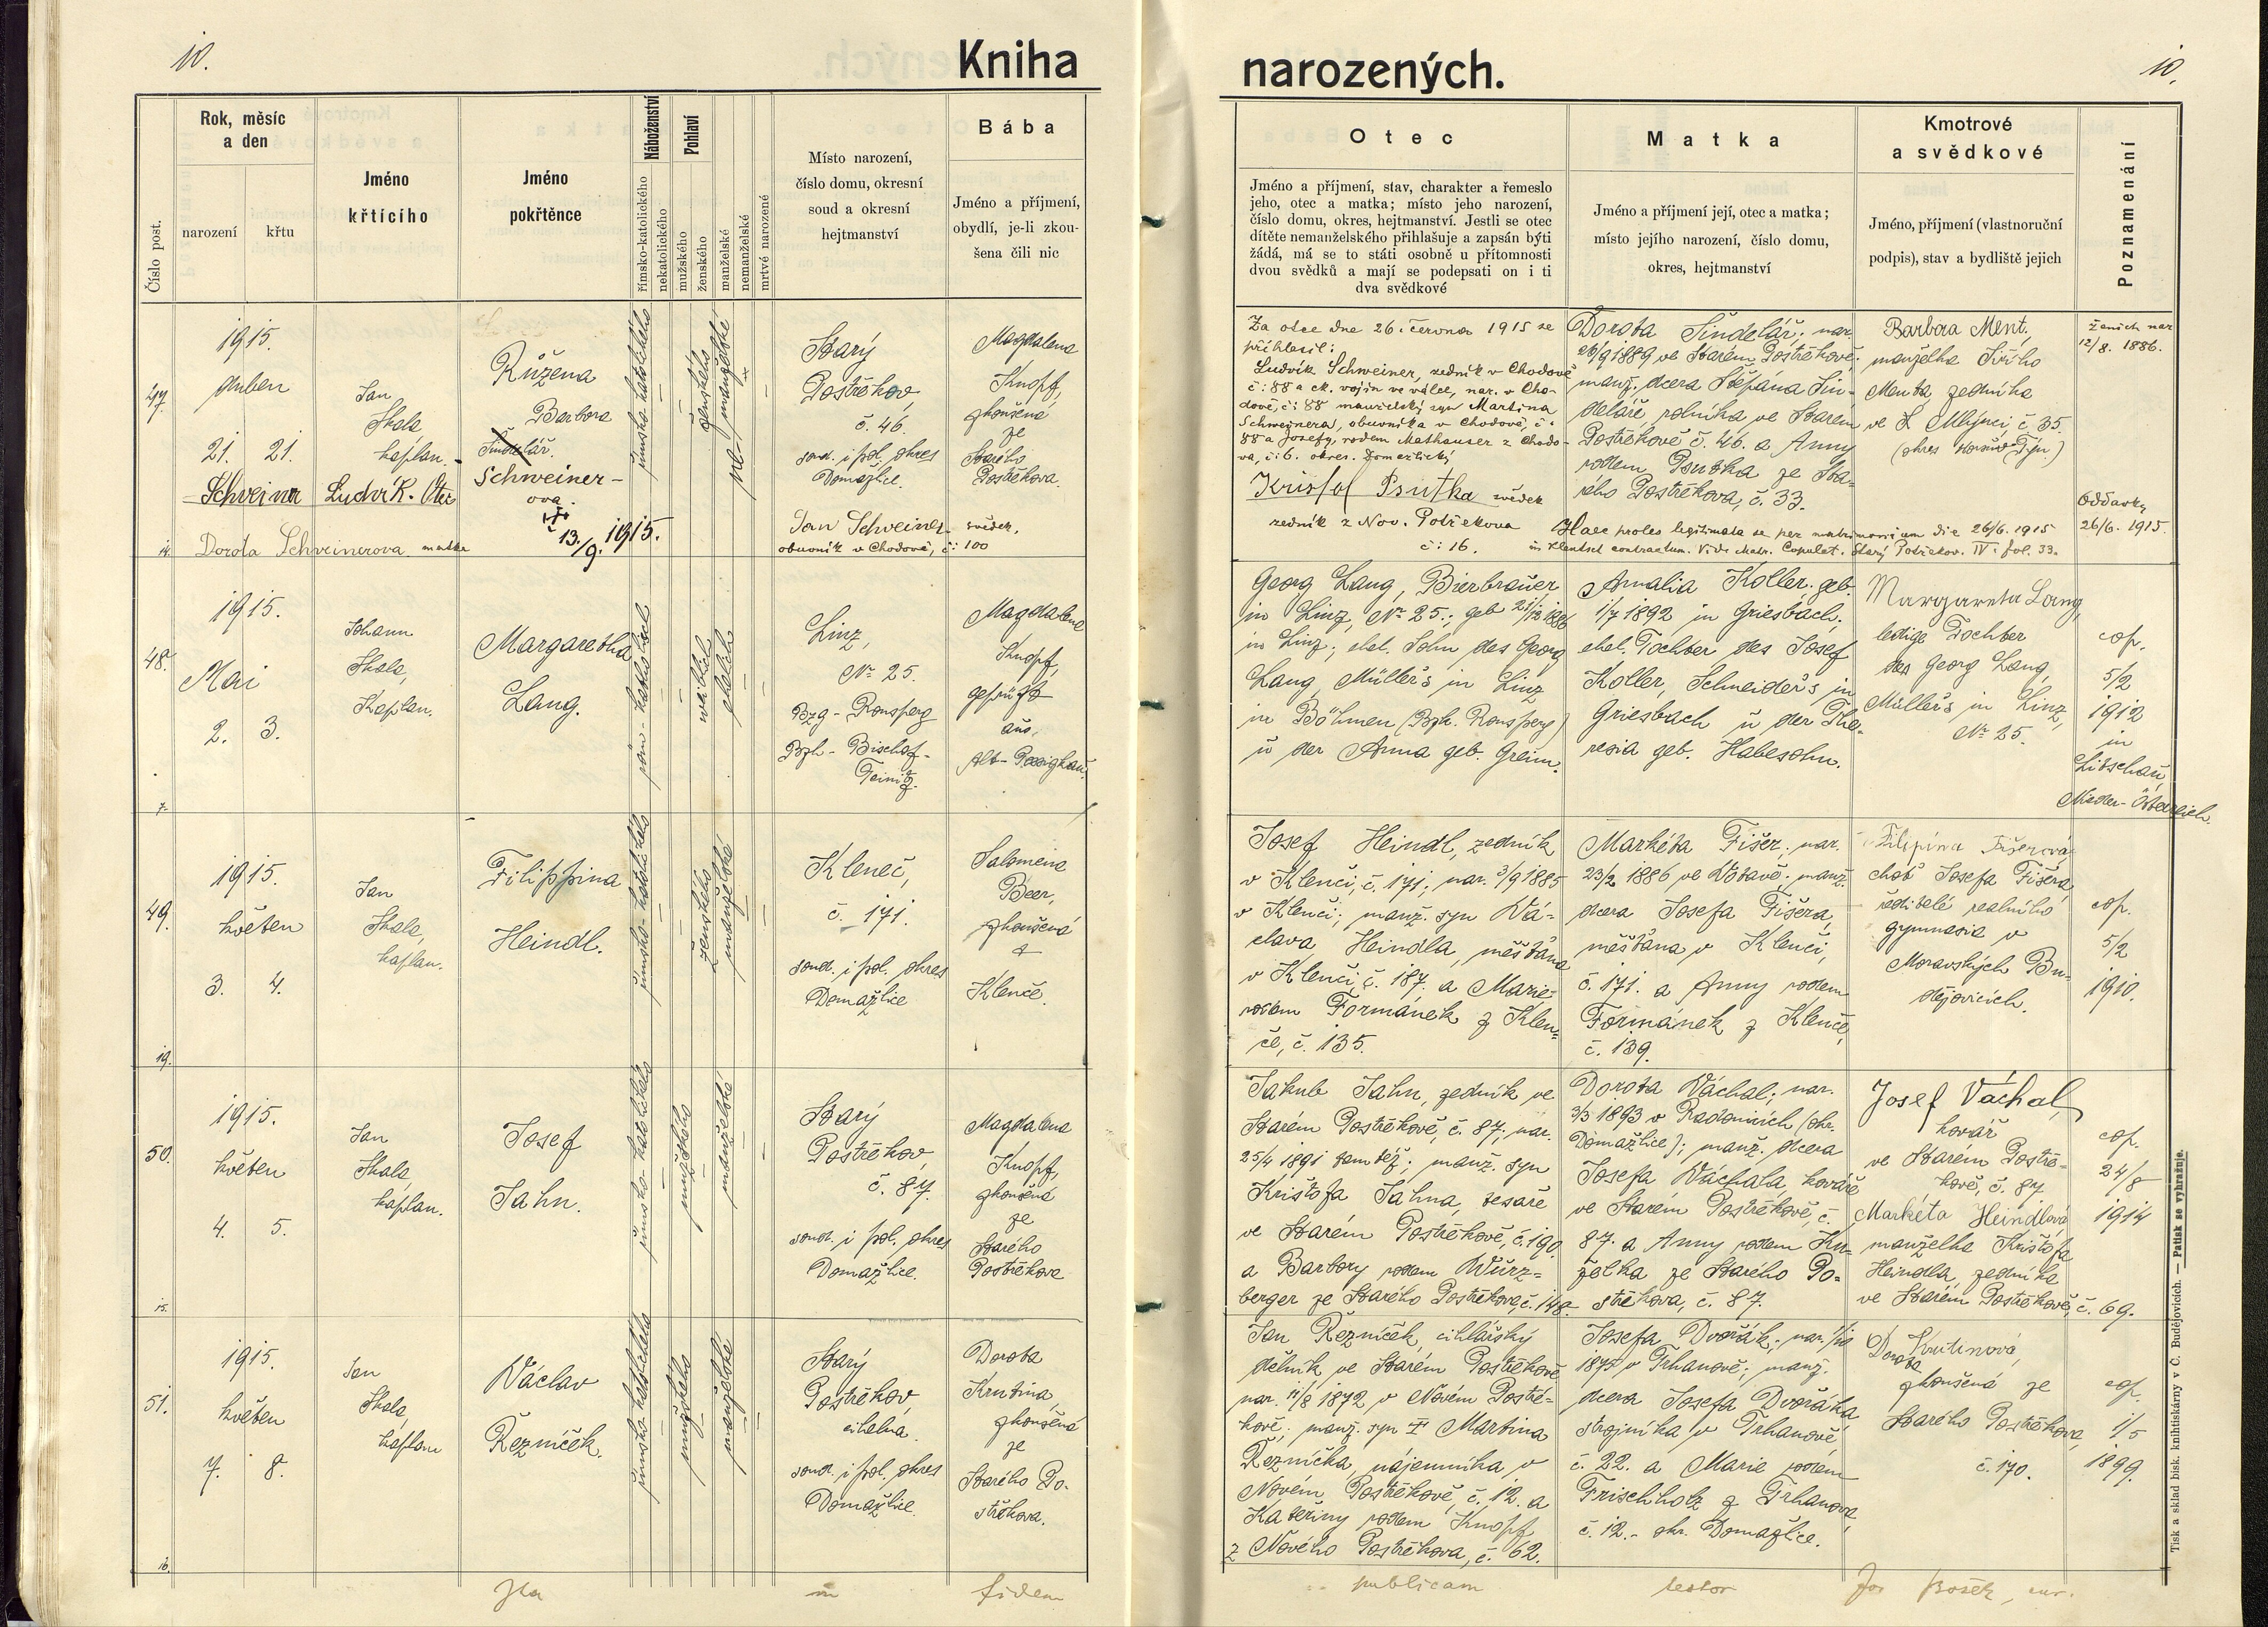 10.
Kniha
narozených.
10.
Číslo post.
Rok, měsíc
a den
narození
křtu
Jméno
křtícího
Jméno
pokřtěnce
Náboženství
římsko-katolického
nekatolického
Pohlaví
mužského
ženského
manželské
nemanželské
mrtvé narozené
Místo narození,
číslo domu, okresní
soud a okresní
hejtmanství
Bába
Jméno a příjmení,
obydlí, je-li zkou-
šena čili nic
Otec
Jméno a příjmení, stav, charakter a řemeslo
jeho, otec a matka; místo jeho narození,
číslo domu, okres, hejtmanství. Jestli se otec
dítěte nemanželského přihlašuje a zapsán býti
žádá, má se to státi osobně u přítomnosti
dvou svědků a mají se podepsati on i ti
dva svědkové
Matka
Jméno a příjmení její, otec a matka;
místo jejího narození, číslo domu,
okres, hejtmanství
Kmotrové
a svědkové
Jméno, příjmení (vlastnoruční
podpis), stav a bydliště jejich
Poznamenání
47.
1915.
duben
21. 21.
Jan
Skala
kaplan.
Růžena
Barbora
Šindelář.
Schweiner-
ova.
13./9. 1915.
římsko-katolického
ženského
manželské
Starý
Postřekov,
č. 46.
soud. i pol. okres
Domažlice.
Magdalena
Knopf,
zkoušená
ze
Starého
Postřekova.
Schveiner Ludvík. Otec
14.
Dorota Schveinerova matka
Jan Schweiner svědek,
obuvník v Chodově, č: 100
Za otce dne 26. června 1915 se
přihlásil:
Ludvík Schweiner, zedník v Chodově
č: 88 a ck. vojín ve válce, nar. v Cho-
dově, č: 88 manželský syn Martina
Schweinera, obuvníka v Chodově, č.
88 a Josefy, rodem Mathauser z Chodo-
va, č: 6. okres. Domažlický
Krištof Psutka svědek
zedník z Nov. Postřekova
č: 16.
Dorota Šindelář; nar.
26/9 1889 ve Starém Postřekově;
manž. dcera Štěpána Šin-
deláře, rolníka ve Starém
Postřekově č. 46. a Anny
rodem Psutka ze Sta-
rého Postřekova, č. 33.
Haec proles legitimata se per matrimonium die 26/6. 1915
in Klentsch contractum. Vide Matr. Copulat. Starý Postřekov. IV. fol. 33.
Barbora Ment,
manželka Jiřího
Menta, zedníka
ve Mlýnci č. 35.
(okres Horšův Týn.)
ženich nar
12/8. 1886.
Oddavky
26/6. 1915.
48.
1915.
Mai
2. 3.
7.
Johann
Skala,
Kaplan.
Margaretha
Lang.
röm-katholisch
weiblich
ehelich
Linz,
No 25.
Bzg-Ronsperg
Bzh-Bischof-
Teinitz.
Magdalena
Knopf,
geprüft
aus,
Alt-Possigkau.
Georg Lang, Bierbrauer
in Linz, No 25.; geb 25/12 1886
in Linz; ehel. Sohn des Georg
Lang, Müllers in Linz
in Böhmen (Bzh. Ronsperg)
u der Anna geb. Greim.
Amalia Koller, geb.
1/7 1892 in Griesbach;
ehel. Tochter des Josef
Koller, Schneiders in
Griesbach u der The-
resia geb. Habesohn.
Margareta Lang,
ledige Tochter
des Georg Lang,
Müllers in Linz,
No 25.
cop.
5/2
1912
in
Litschau,
Nieder-Österreich.
49.
1915.
květen
3. 4.
19.
Jan
Skala,
kaplan.
Filippina
Heindl.
římsko-katolického
ženského
manželské
Kleneč,
č. 171.
soud. i pol. okres
Domažlice
Salomena
Beer,
zkoušená
z
Klenče.
Josef Heindl, zedník
v Klenči, č. 171; nar. 3/9 1885
v Klenči; manž. syn Vá-
clava Heindla, měšťana
v Klenči, č. 187. a Marie
rodem Formánek z Klen-
če, č. 135.
Markéta Fišer; nar.
23/2 1886 ve Votavě; manž.
dcera Josefa Fišera,
měšťana v Klenči,
č. 171. a Anny rodem
Formánek z Klenče,
č. 139.
Filipína Fišerová
choť Josefa Fišera
ředitele realního
gymnasia v
Moravských Bu-
dějovicích.
cop.
5/2
1910.
50.
1915.
květen
4. 5.
15.
Jan
Skala,
kaplan.
Josef
Jahn.
římsko-katolického
mužského
manželské
Starý
Postřekov,
č. 87.
soud. i pol. okres
Domažlice.
Magdalena
Knopf,
zkoušená
ze
Starého
Postřekova
Jakub Jahn, zedník ve
Starém Postřekově, č. 87; nar.
25/4 1891 tamtéž; manž. syn
Krištofa Jahna, tesaře
ve Starém Postřekově, č. 190
a Barbory rodem Würz-
berger ze Starého Postřekova, č. 148.
Dorota Váchal; nar.
3/3 1893 v Radonicích (okr.
Domažlice); manž. dcera
Josefa Váchala kováře
ve Starém Postřekově, č.
87. a Anny rodem Ku-
želka ze Starého Po-
střekova, č. 87.
Josef Váchal,
kovář
ve Starém Postře-
kově, č. 87
Markéta Heindlová
manželka Krištofa
Heindla, zedníka
ve Starém Postřekově, č. 69.
cop.
24/8
1914
51.
1915.
květen
7. 8.
16.
Jan
Skala,
kaplan
Václav
Řezníček.
římsko-katolického
mužského
manželské
Starý
Postřekov,
cihelna
soud. i pol. okres
Domažlice.
Dorota
Krutina,
zkoušená
ze
Starého Po-
střekova.
Jan Řezníček, cihlářský
dělník ve Starém Postřekově
nar. 11/8 1872 v Novém Postře-
kově; manž. syn Martina
Řezníčka, nájemníka v
Novém Postřekově, č. 12. a
Kateřiny rodem Knopf
z Nového Postřekova, č. 62.
Josefa Dvořák; nar.
1875 v Trhanově; manž.
dcera Josefa Dvořáka,
strojníka v Trhanově,
č. 22. a Marie rodem
Frischholz z Trhanova,
č. 12. - okr. Domažlice.
Dorota Krutinová,
zkoušená ze
Starého Postřekova,
č. 170.
cop.
1/5
1899.
Ita in fidem publicam testor
Tisk a sklad bisk. knihtiskárny v Č. Budějovicích. — Patisk se vyhražuje.